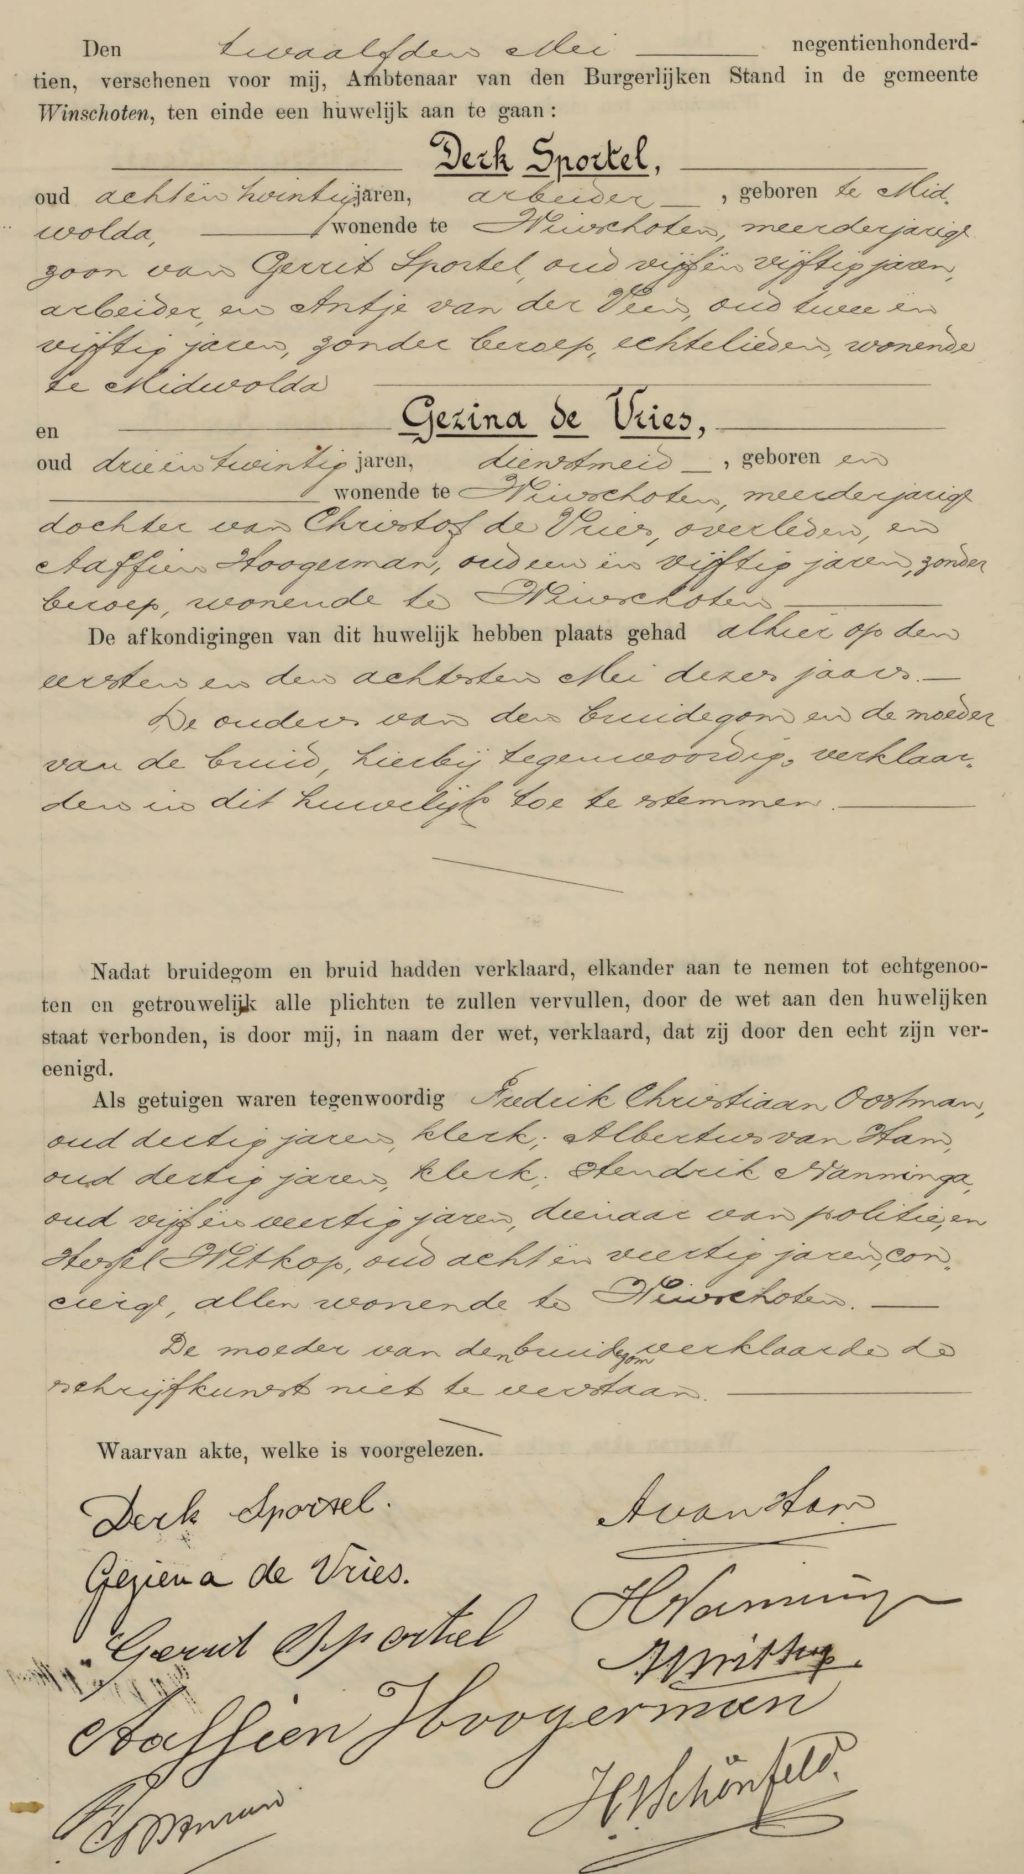 Den twaalfden Mei negentienhonderd-
tien, verschenen voor mij, Ambtenaar van den Burgerlijken Stand in de gemeente
Winschoten, ten einde een huwelijk aan te gaan:
Derk Sportel,
oud achtëntwintig jaren, arbeider, geboren te Mid-
wolda, wonende te Winschoten, meerderjarige
zoon van Gerrit Sportel, oud vijfën vijftig jaren,
arbeider, en Antje van der Veen, oud twee ën
vijftig jaren, zonder beroep, echtelieden, wonende
te Midwolda
en Gezina de Vries,
oud drieëntwintig jaren, dienstmeid, geboren en
wonende te Winschoten, meerderjarige
dochter van Christof de Vries, overleden, en
Aaffien Hoogerman, oud een ën vijftig jaren, zonder
beroep, wonende te Winschoten
De afkondigingen van dit huwelijk hebben plaats gehad alhier op den
eersten en den achtsten Mei dezes jaars.
De ouders van den bruidegom en de moeder
van de bruid, hierbij tegenwoordig, verklaar-
den in dit huwelijk toe te stemmen.
Nadat bruidegom en bruid hadden verklaard, elkander aan te nemen tot echtgenoo-
ten en getrouwelijk alle plichten te zullen vervullen, door de wet aan den huwelijken
staat verbonden, is door mij, in naam der wet, verklaard, dat zij door den echt zijn ver-
eenigd.
Als getuigen waren tegenwoordig Frederik Christiaan Oostman,
oud dertig jaren, klerk; Albertus van Ham,
oud dertig jaren, klerk; Hendrik Nanninga,
oud vijfën veertig jaren, dienaar van politie, en
Hessel Witkop, oud achtën veertig jaren, con-
cierge, allen wonende te Winschoten.
De moeder van den bruidegom verklaarde de
schrijfkunst niet te verstaan.
Waarvan akte, welke is voorgelezen.
Derk Sportel.
A van Ham
Geziena de Vries.
H Nanninga
Gerrit Sportel
H Witkop.
Aaffien Hoogerman
Oostman
H Schönfeld.